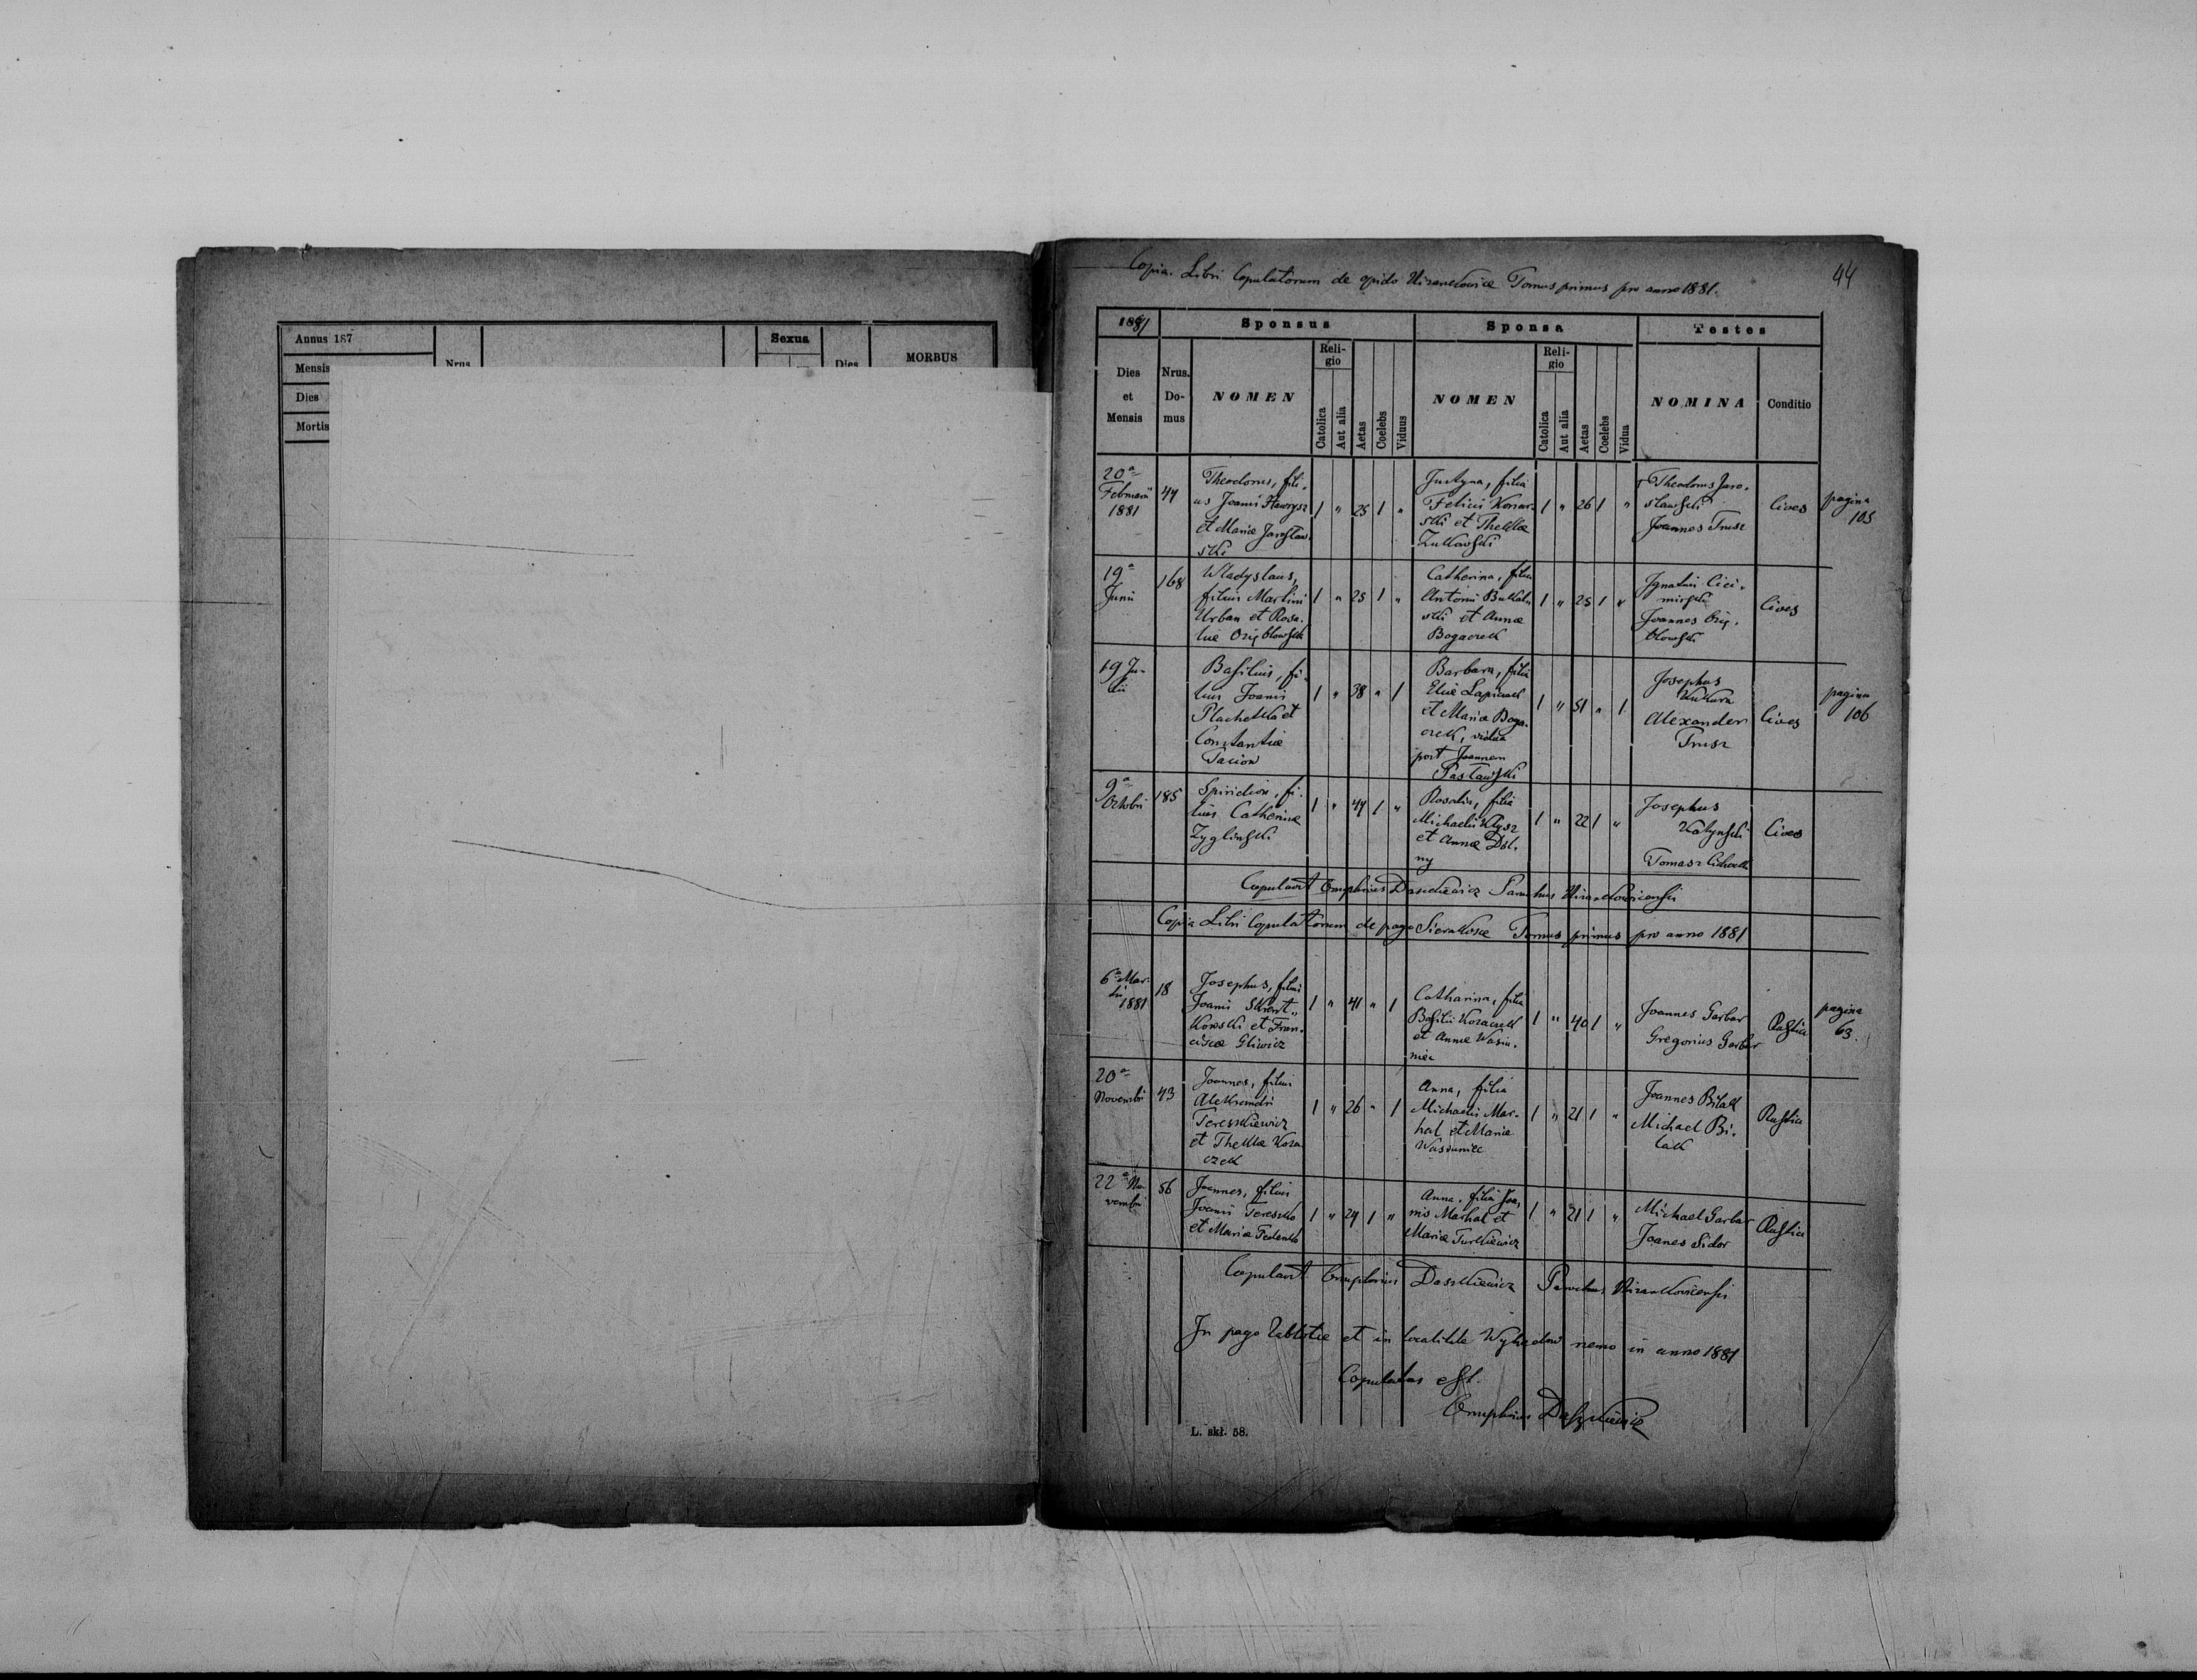 Annus 187
Mensis
Dies
Mortis
Nrus.
Sexus
Dies
MORBUS
Copia Libri Copulatorum de opido Nizankowice Tomus primus pro anno 1881.
44
1881
Sponsus
Sponsa
Testes
Dies
et
Mensis
Nrus.
Do-
mus
NOMEN
Reli-
gio
Catolica
Aut alia
Aetas
Coelebs
Viduus
NOMEN
Reli-
gio
Catolica
Aut alia
Aetas
Coelebs
Vidua
NOMINA
Conditio
20a
Februarii
1881
44
Theodorus, fili-
us Joanis Hawrysz
et Mariæ Jarosław
ski
1 " 25 1 "
Justyna, filia
Felicis Konar
ski et Theklæ
Zukowski
1 " 26 1 "
Theodorus Jaro-
sławski
Joannes Trusz
Cives
pagina
105
19a
Junii
168
Wladyslaus,
filius Martini
Urban et Rosa-
liæ
1 " 25 1 "
Catherina, filia
Antonii
ski et Annæ
Bogaczek
1 " 25 1 "
Ignatius Cici-
mirski
Joannes
Cives
19 Ju-
lii
Basilius, fi-
lius Joanis
Plachetka et
Constantiæ
Tacion
1 " 38 " 1
Barbara, filia
Eliæ
et Mariæ Boga-
czek, vidua
post Joannem
Pasławski
1 " 51 " 1
Josephus
Kukura
Alexander
Trusz
Cives
pagina
106
9a
Octobri
185
Spiridion, fi-
lius Catherinæ
Zyglinski
1 " 44 1 "
Rosalia, filia
Michaelis
et Annæ Dol-
ny
1 " 22 1 "
Josephus
Kotynski
Tomasz
Cives
Copulavit Onuphrius Daszkiewicz Parochus Nizankovicensis
Copia Libri Copulatorum de pago Sierakosce Tomus primus pro anno 1881
6a Mar-
tii
1881
18
Josephus, filius
Joanis Skrent-
kowski et Fran-
ciscæ Gliwicz
1 " 41 " 1
Catharina, filia
Basilii Kozaczek
et Annæ Wasiu-
niec
1 " 40 1 "
Joannes Garbar
Gregorius Garbar
Rustici
pagina
63.
20a
Novembri
43
Joannes, filius
Aleksandri
Tereszkiewicz
et Theklæ Koza
czek
1 " 26 " 1
Anna, filia
Michaelis Mar-
hal et Mariæ
Wasiuniec
1 " 21 1 "
Joannes Bilak
Michael Bi-
lak
Rustici
22a No-
vembri
56
Joannes, filius
Joanis Tereszko
et Mariæ Fedenko
1 " 24 1 "
Anna, filia Joa-
nis Marhal et
Mariæ Turkiewicz
1 " 21 1 "
Michael Garbar
Joanes Sidor
Rustici
Copulavit Onuphrius Daszkiewicz Parochus Nizankovicensis
In pago Zablotce et in localitate Wyhadow nemo in anno 1881
Copulatus est.
Onuphrius Daszkiewicz
L. skł. 58.